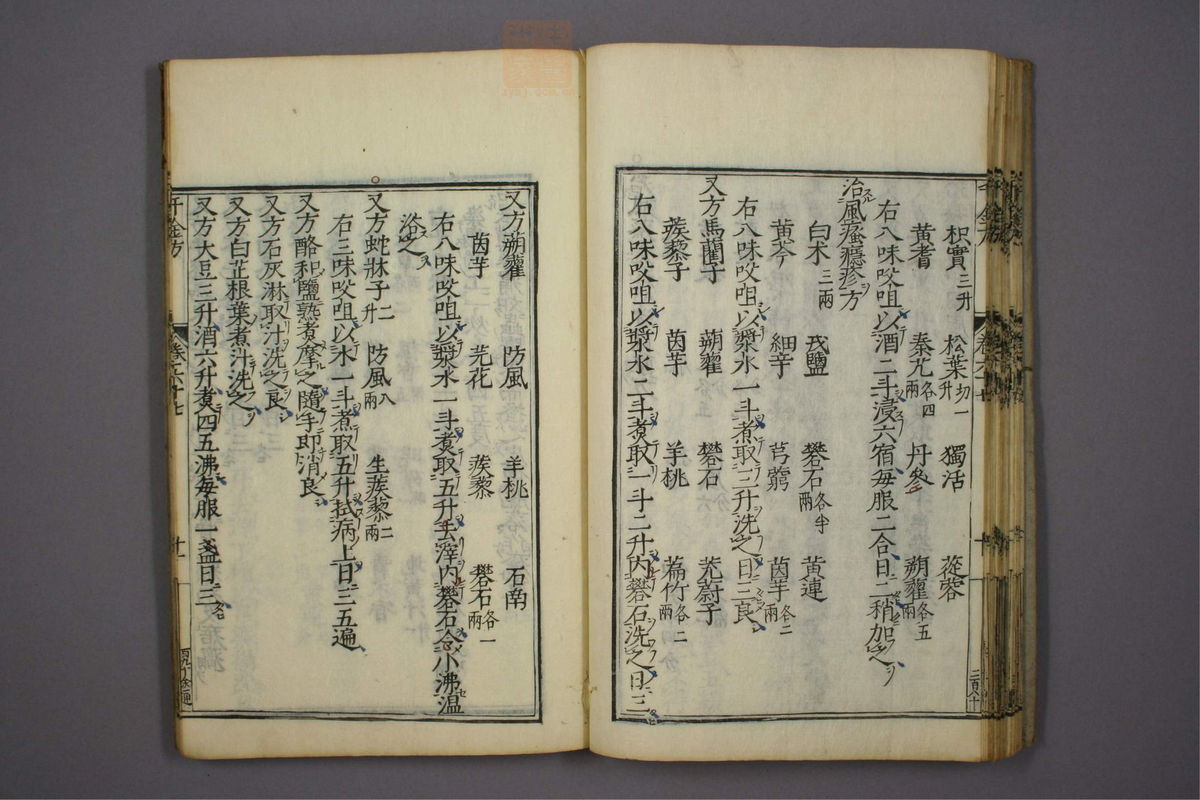 枳實三升 松葉切一升 獨活 蓯蓉
黃耆 秦艽各四兩 丹參 蒴藋各五兩
右八味㕮咀以酒二斗浸六宿每服二合日二稍加之
治風瘙癮疹方
白朮三兩 戎鹽 礬石各半兩 黃連
黃芩 細辛 芎藭 茵芋各二兩
右八味㕮咀以漿水一斗煮取三升洗之日三良
又方馬藺子 蒴藋 礬石 茺蔚子
蒺藜子 茵芋 羊桃 萹竹各二兩
右八味㕮咀以漿水二斗煮取一斗二升內礬石洗之日三
又方蒴藋 防風 羊桃 石南
茵芋 芫花 蒺藜 礬石各一兩
右八味㕮咀以漿水一斗煮取五升去滓內礬石令小沸溫
浴之
又方蛇牀子二升 防風八兩 生蒺藜二兩
右三味㕮咀以水一斗煮取五升拭病上日三五遍
又方酪和鹽熟煮摩之隨手即消良
又方石灰淋取汁洗之良
又方白芷根葉煮汁洗之
又方大豆三升酒六升煮四五沸每服一盞日三
千金方
卷六十七
十一